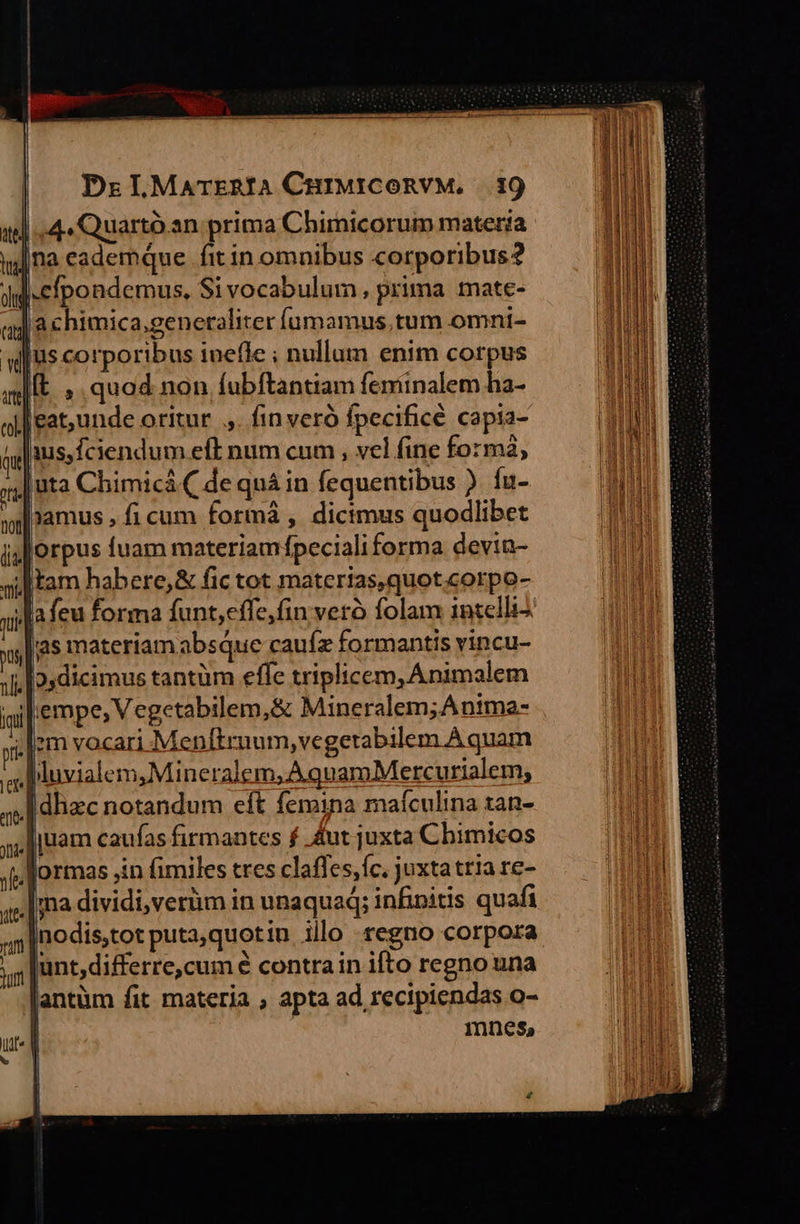 DE I. MATERIA CHIMICORVM. 19
4. Quartò an prima Chimicorum materia
na eademque ſit in omnibus corporibus?
eſpondemus, Si vocabulum, prima mate-
a chimica, generaliter ſumamus, tum omni-
us corporibus ineſſe; nullum enim corpus
ſt, quod non ſubſtantiam ſeminalem ha-
eat, unde oritur, ſin verò ſpecificè capia-
us, ſciendum eſt num cum, vel ſine formâ,
uta Chimicâ (de quâ in ſequentibus) ſu-
amus, ſi cum formâ, dicimus quodlibet
orpus ſuam materiam ſpeciali forma devin-
tam habere, & ſic tot materias, quot corpo-
a ſeu forma ſunt, eſſe, ſin verò ſolam intelli-
as materiam absque cauſæ formantis vincu-
o, dicimus tantùm eſſe triplicem, Animalem
empe, Vegetabilem, & Mineralem; Anima-
em vocari Menſtruum, vegetabilem Aquam
luvialem, Mineralem, Aquam Mercurialem,
dhæc notandum eſt femina maſculina tan-
uam cauſas firmantes ſ. Aut juxta Chimicos
ormas, in ſimiles tres claſſes, ſc. juxta tria re-
na dividi, verùm in unaquaq; infinitis quaſi
nodis, tot puta, quot in illo regno corpora
unt, differre, cum è contra in iſto regno una
antùm ſit materia, apta ad recipiendas o-
mnes,